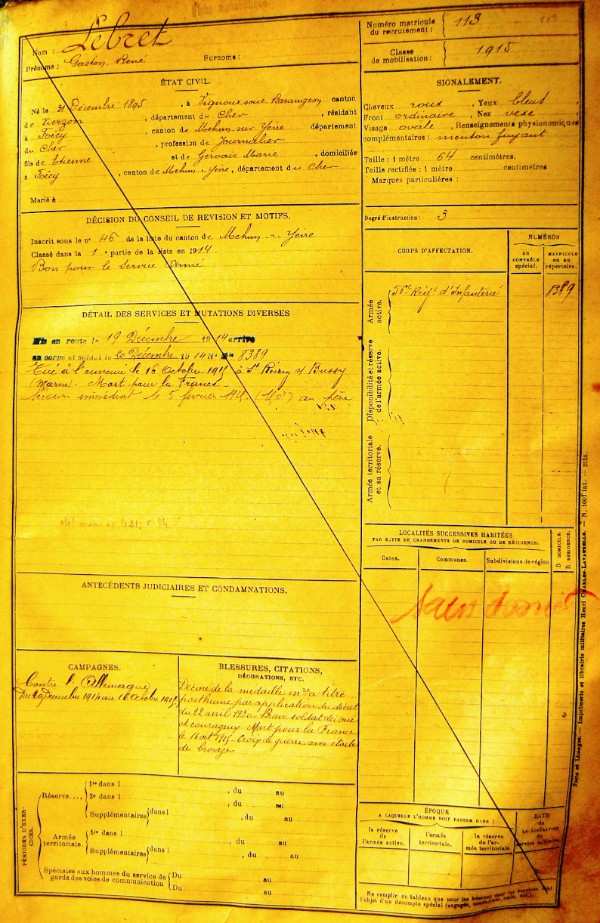 Nom : Lebret
Prénoms : Gaston René Surnoms :
Numéro matricule du recrutement : 113
Classe de mobilisation : 1915
ÉTAT CIVIL.
Né le 31 Décembre 1895, à Vignoux-sous-Barangeon canton
de Vierzon, département du Cher, résidant
à Foëcy, canton de Mehun-sur-Yèvre département
du Cher, profession de Journalier
fils de Etienne et de Gervais Marie, domiciliés
à Foëcy, canton de Mehun s Yèvre, département du Cher
Marié à
SIGNALEMENT.
Cheveux roux Yeux bleus
Front ordinaire Nez vexe
Visage ovale Renseignements physionomiques
complémentaires : menton fuyant
Taille : 1 mètre 64 centimètres.
Taille rectifiée : 1 mètre centimètres
Marques particulières :
Degré d'instruction : 3
DÉCISION DU CONSEIL DE REVISION ET MOTIFS.
Inscrit sous le n° 46 de la liste du canton de Mehun s Yèvre
Classé dans la 1 partie de la liste en 1914
Bon pour le Service Armé
DÉTAIL DES SERVICES ET MUTATIONS DIVERSES
Mis en route le 19 Décembre 1914 arrivé
au corps et soldat le 20 Décembre 1914 N° 8389
Tué à l'ennemi le 16 Octobre 1915 à St Rémy s/ Bussy
(Marne). Mort pour la France
Secours immédiat le 5 février au père
CORPS D'AFFECTATION.
NUMÉROS
AU CONTRÔLE spécial.
MATRICULE OU AU répertoire.
Armée active.
Régt d'Infanterie
1389
Disponibilité et réserve de l'armée active.
Armée territoriale et sa réserve.
LOCALITÉS SUCCESSIVES HABITÉES
PAR SUITE DE CHANGEMENTS DE DOMICILE OU DE RÉSIDENCE.
Dates. Communes. Subdivisions de région
D DOMICILE.
R RÉSIDENCE.
ANTÉCÉDENTS JUDICIAIRES ET CONDAMNATIONS.
CAMPAGNES.
Contre l'Allemagne
Du 20 Décembre 1914 au 16 Octobre 1915
BLESSURES, CITATIONS,
DÉCORATIONS, ETC.
Décoré de la médaille mre à titre
posthume par application du décret
du 22 avril 1920 Brave soldat dévoué
et courageux. Mort pour la France
le 16 oct 1915 - Croix de guerre avec étoile
de bronze
PÉRIODES D'EXERCICES.
Réserve....
1re dans l , du au
2e dans l , du au
Supplémentaires dans l , du au
Armée territoriale.
1re dans l , du au
Supplémentaires dans l , du au
Spéciales aux hommes du service de garde des voies de communication
Du au
Du au
ÉPOQUE
A LAQUELLE L'HOMME DOIT PASSER DANS :
la réserve de l'armée active.
l'armée territoriale.
la réserve de l'armée territoriale
DATE de LA LIBÉRATION du service militaire.
Paris et Limoges. — Imprimerie et librairie militaires Henri CHARLES-LAVAUZELLE.